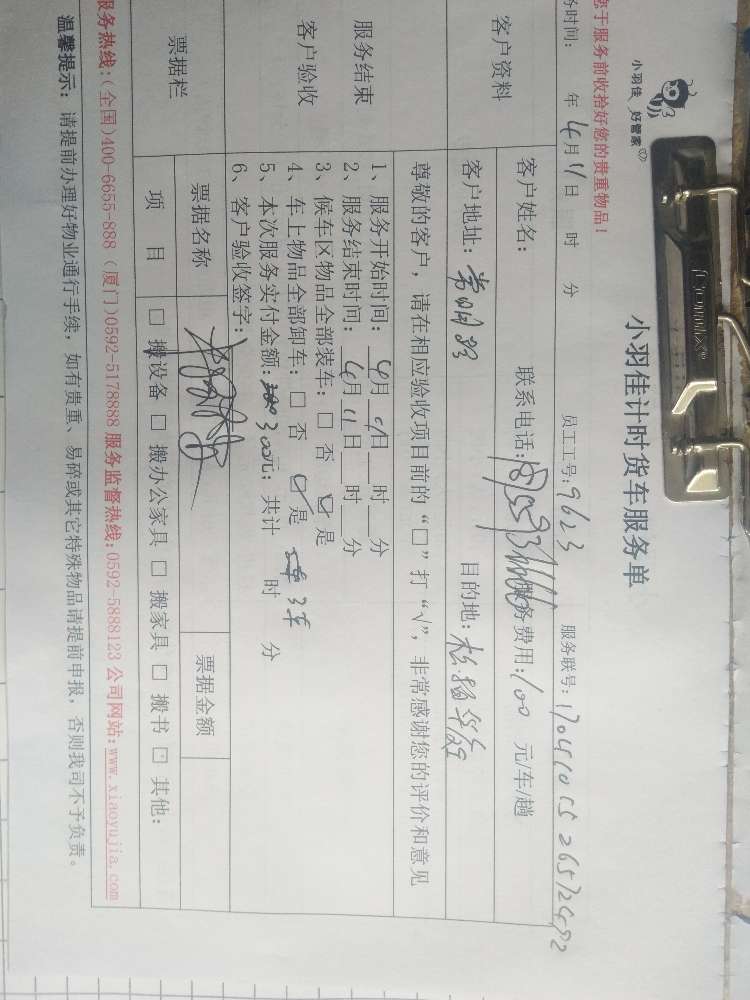 小羽佳 好管家
小羽佳计时货车服务单
您于服务前收拾好您的贵重物品！
务时间： 年 4月11日 时 分 员工工号：9623 服务联号：
客户资料
客户姓名： 联系电话： 服务费用：100 元/车/趟
客户地址： 目的地：
服务结束
客户验收
尊敬的客户，请在相应验收项目前的“□”打“√”，非常感谢您的评价和意见
1、服务开始时间：4月 日 时 分
2、服务结束时间：4月11日 时 分
3、候车区物品全部装车：□ 否 ☑ 是
4、车上物品全部卸车：□ 否 ☑ 是
5、本次服务实付金额：300元；共计 时 分
3车
6、客户验收签字：
票据栏
票据名称 票据金额
项 目 □ 搬设备 □ 搬办公家具 □ 搬家具 □ 搬书 □ 其他：
服务热线：(全国)400-6655-888 (厦门)0592-5178888 服务监督热线：0592-5888123 公司网站：www.xiaoyujia.com
温馨提示：请提前办理好物业通行手续，如有贵重、易碎或其它特殊物品请提前申报，否则我司不予负责。